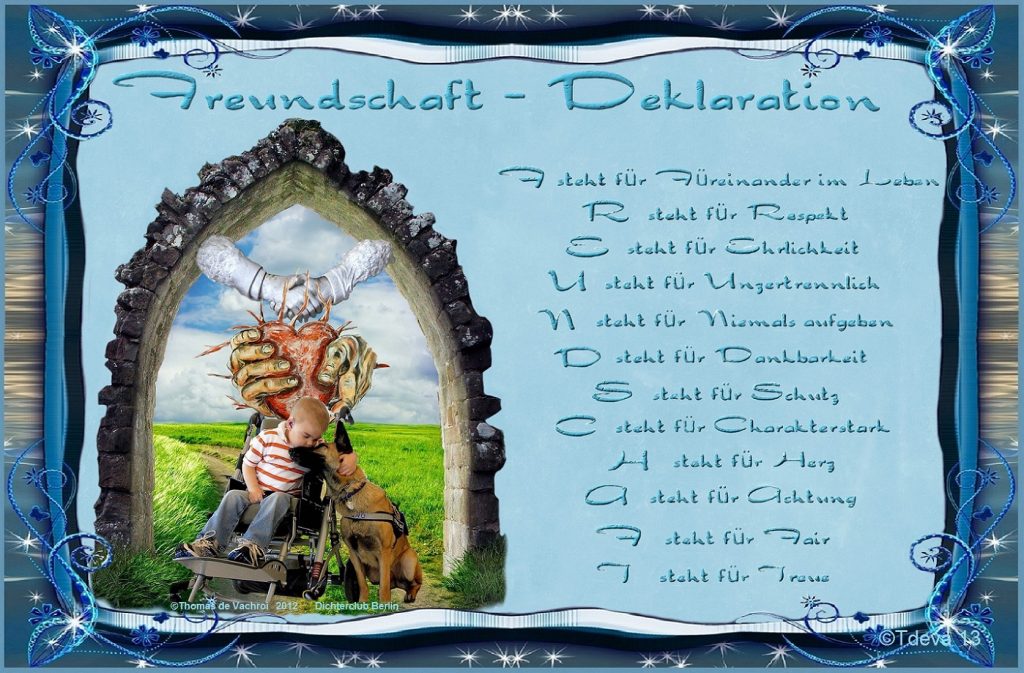 Freundschaft - Deklaration
F steht für Füreinander im Leben
R steht für Respekt
E steht für Ehrlichkeit
U steht für Unzertrennlich
N steht für Niemals aufgeben
D steht für Dankbarkeit
S steht für Schutz
C steht für Charakterstark
H steht für Herz
A steht für Achtung
F steht für Fair
T steht für Treue
©Thomas de Vachroi 2012 Dichterclub Berlin
©Tdeva 13